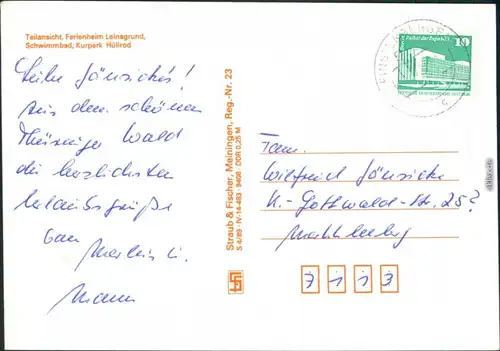 Teilansicht, Ferienheim Leinagrund,
Schwimmbad, Kurpark Hüllrod
Liebe Jänsichs!
Aus dem schönen
Thüringer Wald
die herzlichsten
Urlaubsgrüße
von Marlies u.
Mann
Straub & Fischer, Meiningen, Reg.-Nr. 23
S 4/89 · IV-14-483 · 9406 · DDR 0,25 M
10
Berlin, Palast der Republik
Fam.
Wilfried Jänsicke
K.-Gottwald-Str. 25?
Markkleeberg
7113